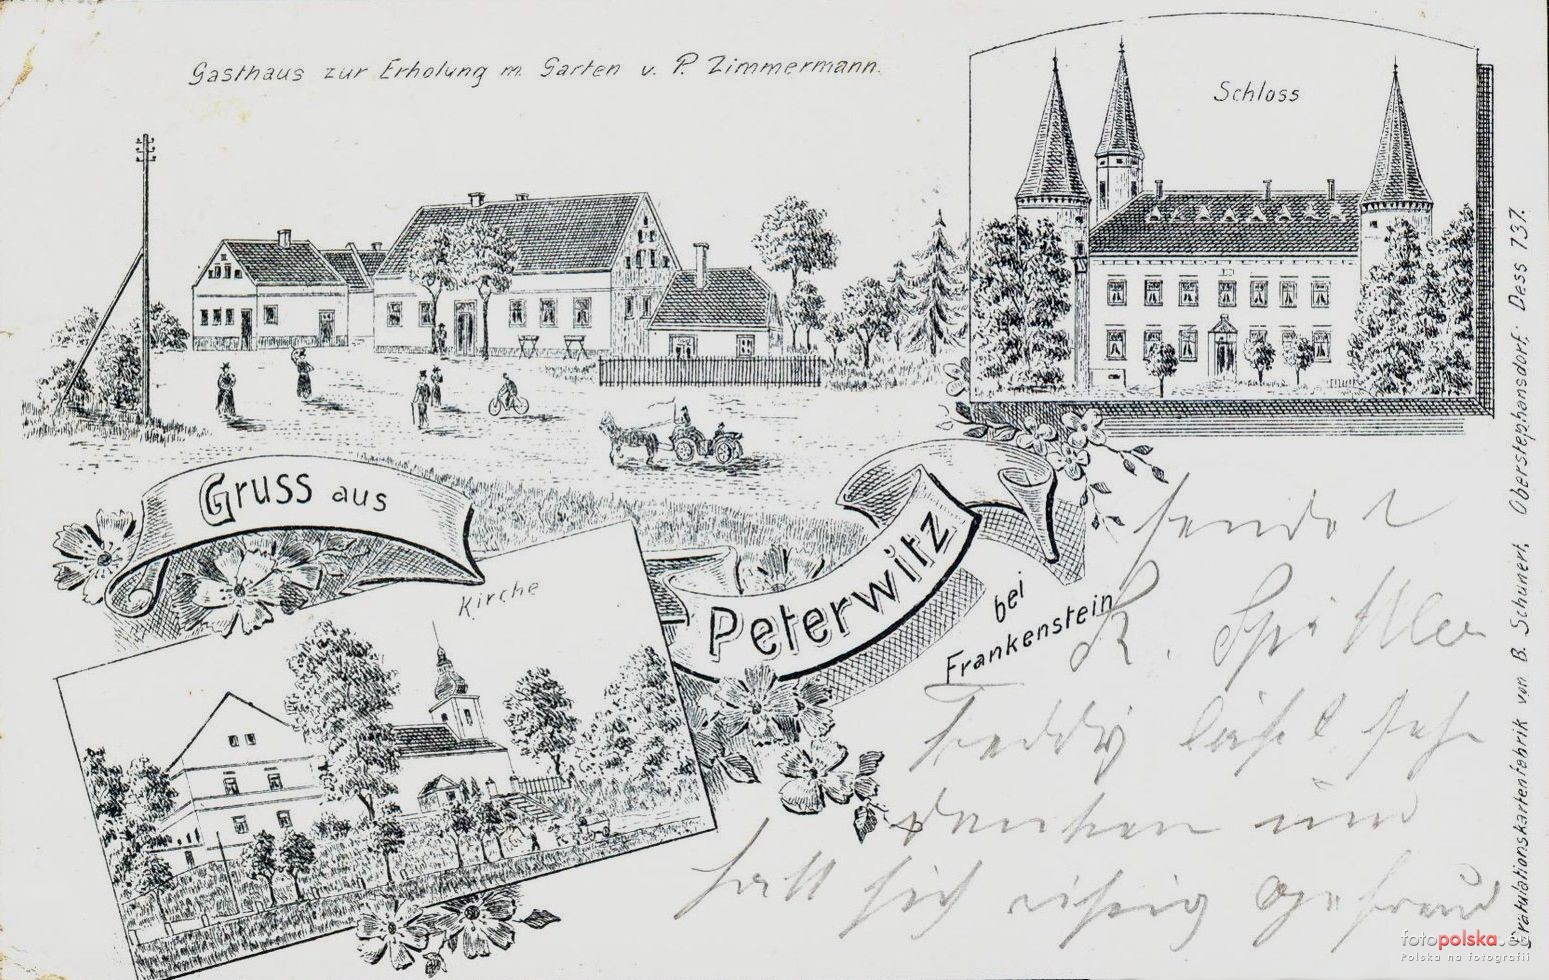 Gasthaus zur Erholung m. Garten v. P. Zimmermann.
Schloss
Gruss aus
Peterwitz
bei
Frankenstein
Kirche
sendet
R.
läßt sehr
danken und
hatt sich
Gratulationskartenfabrik von B. Schunert, Oberstephansdorf. Dess 737.
fotopolska.eu
Polska na fotografii